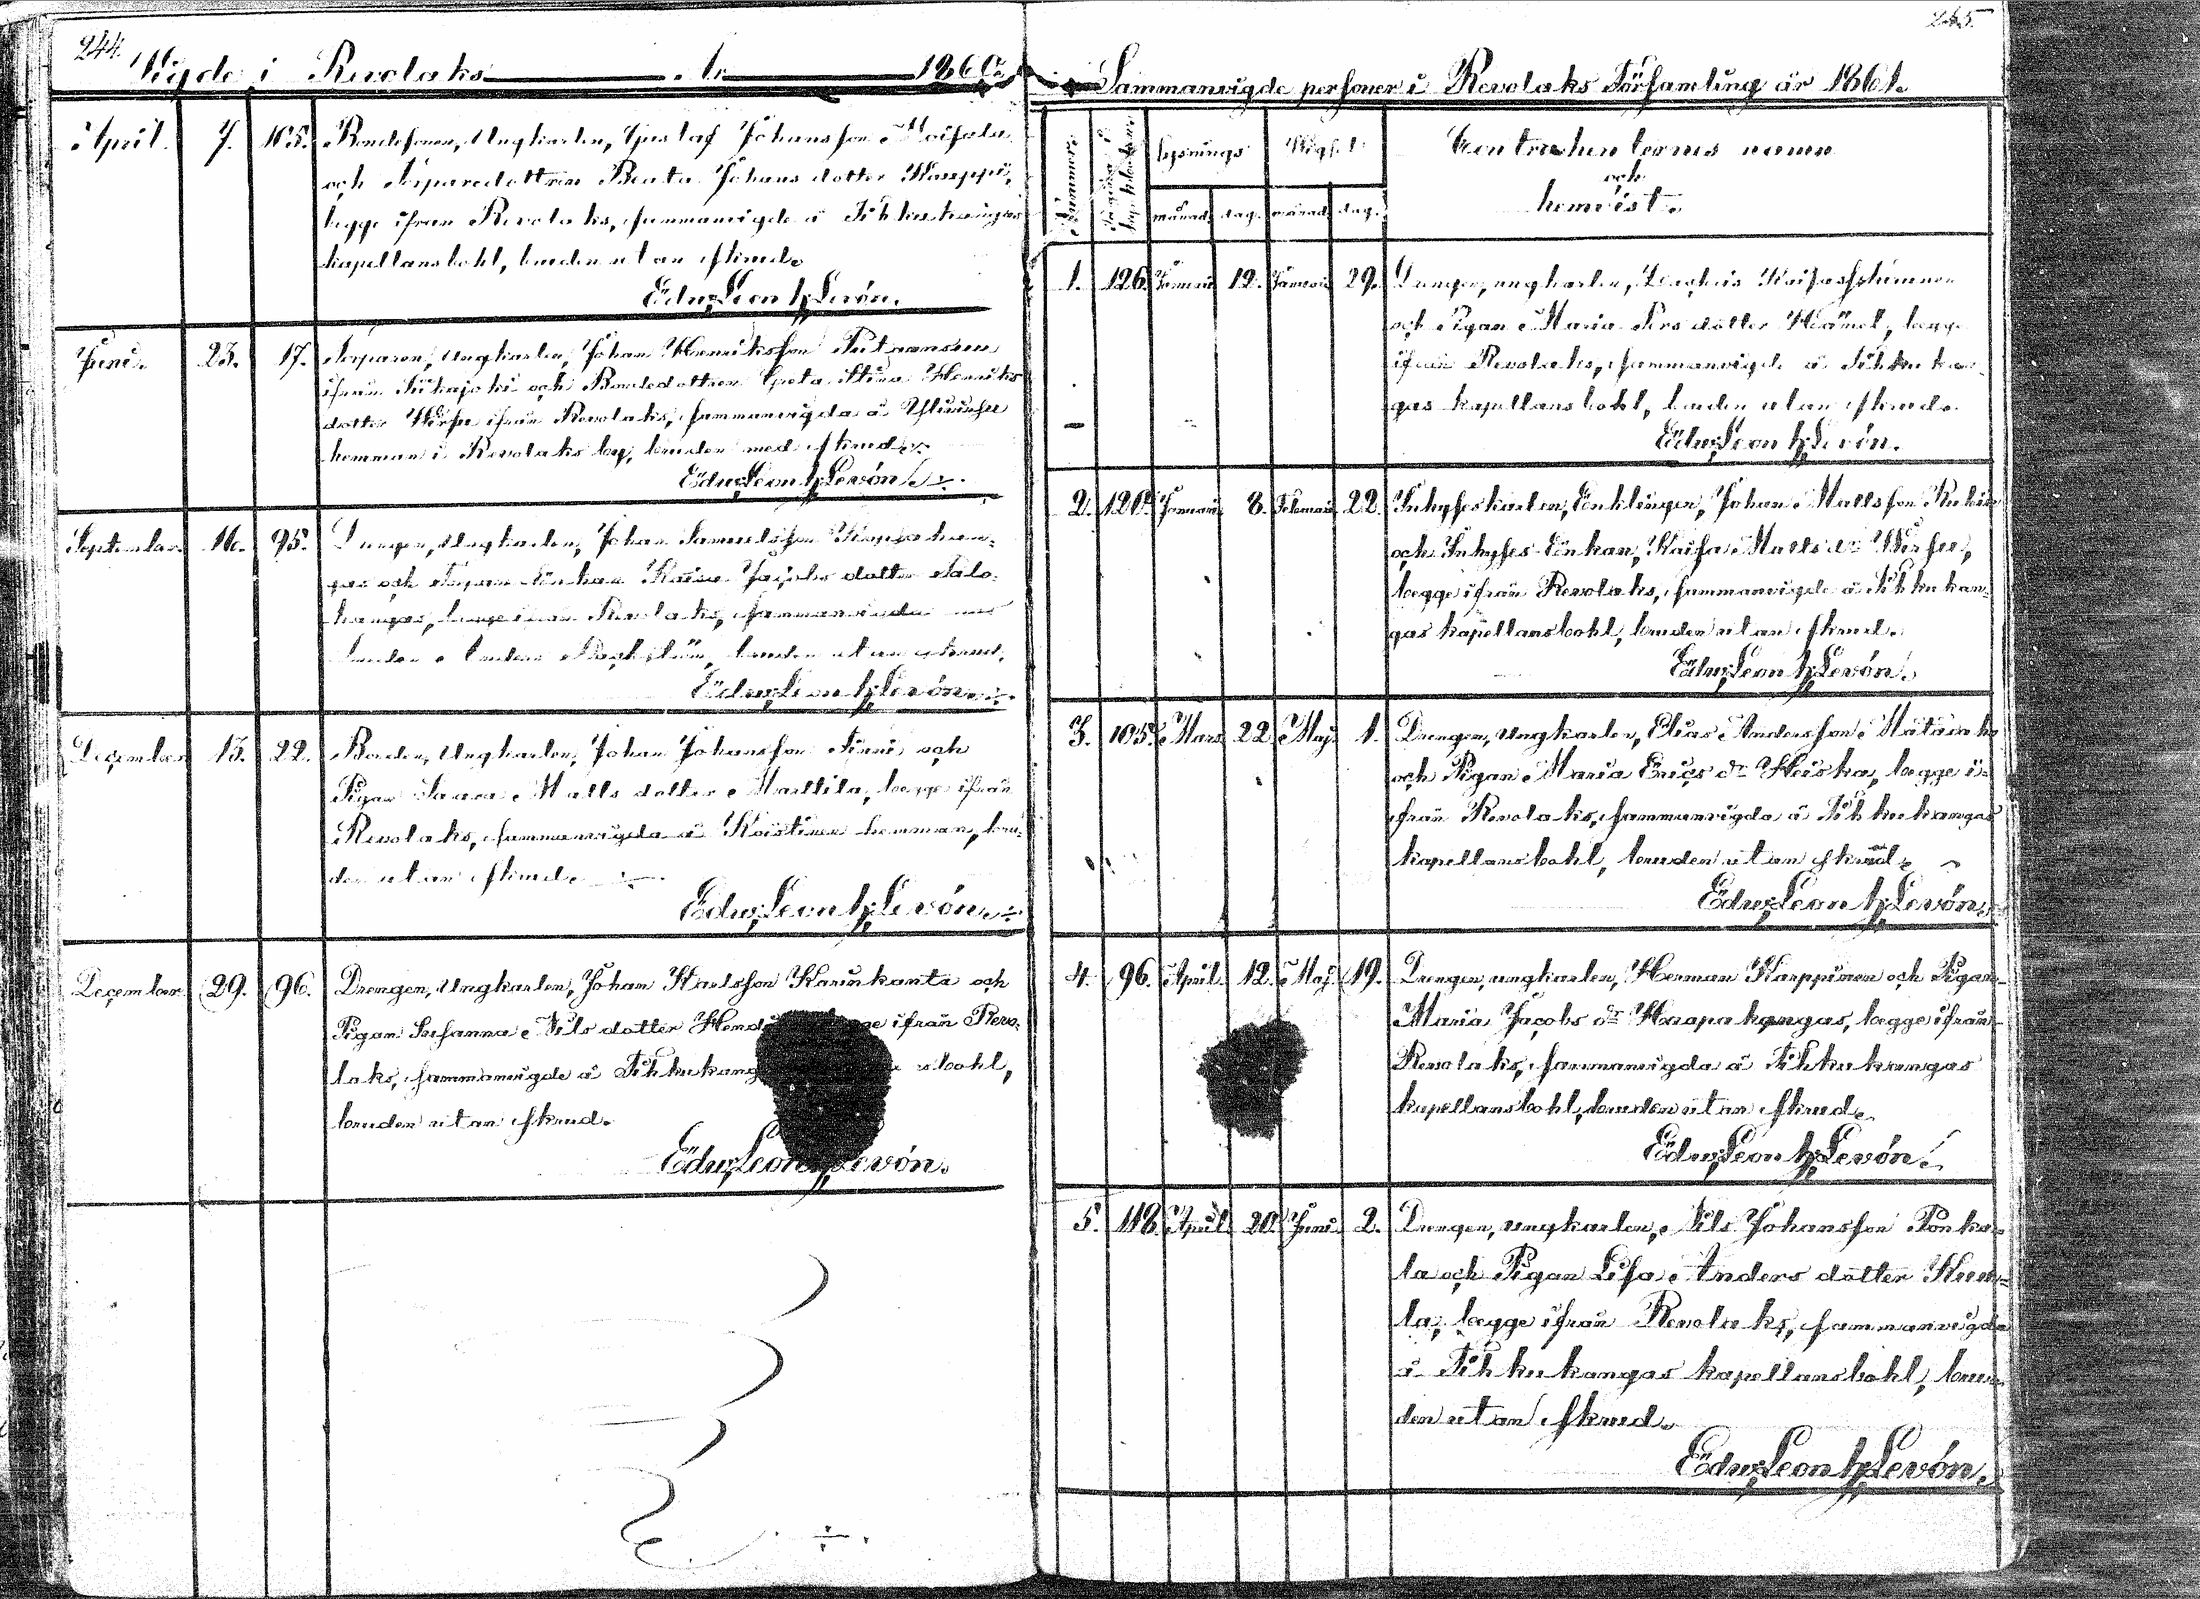 244.
Wigde i Revolaks År 1860.
April. 7. 105. Bondesonen, Ungkarlen, Gustaf Johansson
och Torparedottren Beata Johans dotter Kauppi,
begge ifrån Revolaks, sammanvigde å Tihkukangas
kapellansbohl, bruden utan skrud.
Edw: Leon h: Levón.
Juni. 23. 17. Torparen, Ungkarlen, Johan Henriksson
ifrån Siikajoki och Bondedottren Greta Stina Henriks
dotter ifrån Revolaks, sammanvigda å
hemman i Revolaks by, bruden med skrud.
Edw: Leon h: Levón.
September. 16. 95. Drengen, Ungkarlen, Johan Samuelsson Haapakan-
gas och Enkan Jacobs dotter Salo-
kangas, begge ifrån Revolaks, sammanvigda
bruden utan skrud.
Edw: Leon h: Levón.
December 13. 22. Bonden, Ungkarlen, Johan Johansson och
Pigan Saara Matts dotter Marttila, begge ifrån
Revolaks, sammanvigda å hemman, bru-
den utan skrud.
Edw: Leon h: Levón.
December 29. 96. Drengen, Ungkarlen, Johan Karlsson Karinkanta och
Pigan Susanna Nils dotter ifrån Revo-
laks, sammanvigde å
bruden utan skrud.
Edw: Leon h: Levón.
245.
Sammanvigde personer i Revolaks Församling år 1861.
Nummer.
Lysnings Vigsel
Contrahenternes namn
och
hemvist.
månad. dag. månad. dag.
1. 126. Januari 12. Januari 29. Drengen, ungkarlen,
och Pigan Maria Pers dotter begge
ifrån Revolaks, sammanvigde å Tihkukan-
gas kapellansbohl, bruden utan skrud.
Edw: Leon h: Levón.
2. 120. Januari 8. Februari 22. Inhyseskarlen, Enklingen, Johan Mattsson
och Inhyses Enkan, Kaisa Matts dr
begge ifrån Revolaks, sammanvigde å Tihkukan-
gas kapellansbohl, bruden utan skrud.
Edw: Leon h: Levón.
3. 105. Mars 22. Maj 1. Drengen, ungkarlen, Elias Andersson
och Pigan Maria Erics dr Heiska, begge i-
från Revolaks, sammanvigda å Tihkukangas
kapellansbohl, bruden utan skrud.
Edw: Leon h: Levón.
4. 96. April 12. Maj. 19. Drengen, ungkarlen, Herman Karppinen och Pigan
Maria Jacobs dr Haapakangas, begge ifrån
Revolaks, sammanvigda å Tihkukangas
kapellansbohl, bruden utan skrud.
Edw: Leon h: Levón.
5. 118. April 20. Juni 2. Drengen, ungkarlen, Nils Johansson Ponka-
la och Pigan Lisa Anders dotter
la, begge ifrån Revolaks, sammanvigda
å Tihkukangas kapellansbohl, bru-
den utan skrud.
Edw: Leon h: Levón.